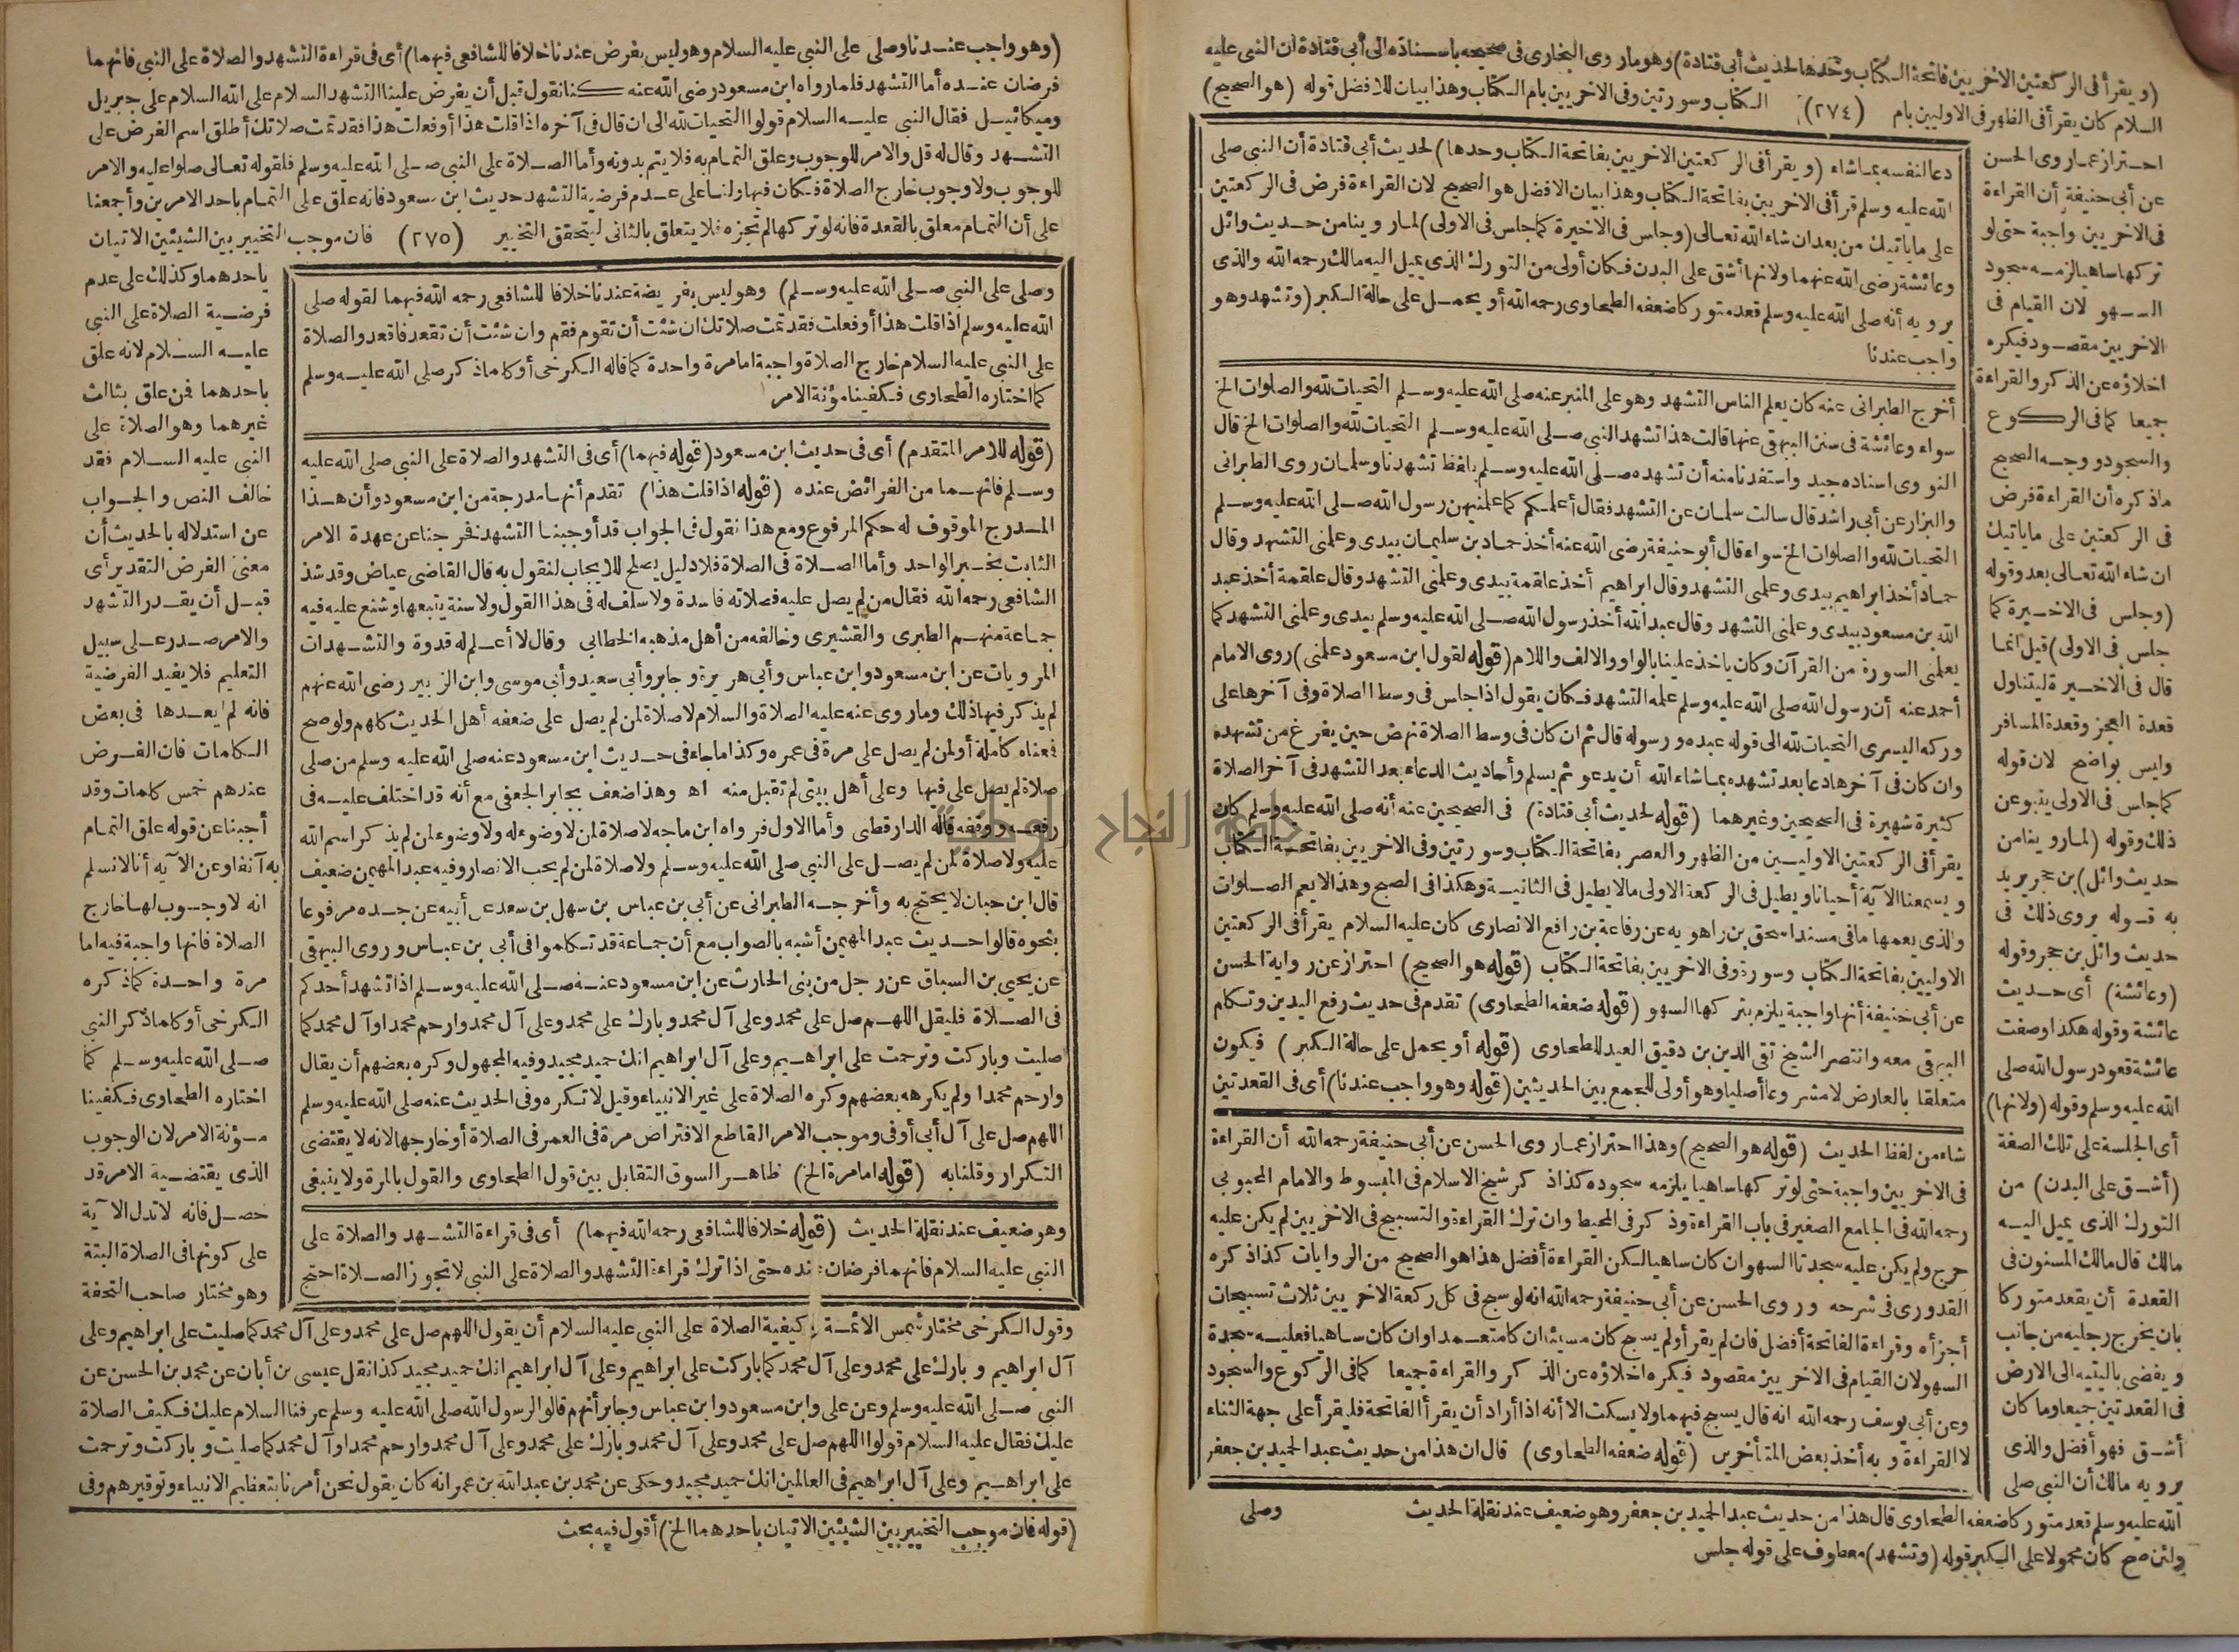 (ويقرأ فى الركعتين الاخريين فاتحة الكتاب وحدها لحديث أبى قتادة) وهو ماروى البخارى فى صحيحه باسناده الى أبى قتادة أن النبى عليه
السلام كان يقرأ فى الظهر فى الاوليين بام (٢٧٤) الكتاب وسورتين وفى الاخريين بام الكتاب وهذا بيان للافضل قوله (هو الصحيح)
احتراز عما روى الحسن
عن أبى حنيفة أن القراءة
فى الاخريين واجبة حتى لو
تركها ساهيا لزمه سجود
السهو لان القيام فى
الاخريين مقصود فيكره
اخلاؤه عن الذكر والقراءة
جميعا كما فى الركوع
والسجود ووجه الصحيح
ماذكره أن القراءة فرض
فى الركعتين على ما يأتيك
ان شاء الله تعالى بعد وقوله
(وجلس فى الاخيرة كما
جلس فى الاولى) قيل انما
قال فى الاخيرة ليتناول
قعدة الفجر وقعدة المسافر
وليس بواضح لان قوله
كما جلس فى الاولى ينبو عن
ذلك وقوله (لما روينا من
حديث وائل) بن حجر يريد
به قوله يروى ذلك فى
حديث وائل بن حجر وقوله
(وعائشة) أى حديث
عائشة وقوله هكذا وصفت
عائشة قعود رسول الله صلى
الله عليه وسلم وقوله (ولانها)
أى الجلسة على تلك الصفة
(أشق على البدن) من
التورك الذى يميل اليه
مالك قال مالك المسنون فى
القعدة أن يقعد متوركا
بان يخرج رجليه من جانب
ويفضى باليتيه الى الارض
فى القعدتين جميعا وما كان
أشق فهو أفضل والذى
يرويه مالك أن النبى صلى
دعا لنفسه بما شاء (ويقرأ فى الركعتين الاخريين بفاتحة الكتاب وحدها) لحديث أبى قتادة أن النبى صلى
الله عليه وسلم قرأ فى الاخريين بفاتحة الكتاب وهذا بيان الافضل هو الصحيح لان القراءة فرض فى الركعتين
على ما يأتيك من بعد ان شاء الله تعالى (وجلس فى الاخيرة كما جلس فى الاولى) لما روينا من حديث وائل
وعائشة رضى الله عنهما ولانها أشق على البدن فكان أولى من التورك الذى يميل اليه مالك رحمه الله والذى
يرويه أنه صلى الله عليه وسلم قعد متوركا ضعفه الطحاوى رحمه الله أو يحمل على حالة الكبر (وتشهد وهو
واجب عندنا
أخرج الطبرانى عنه كان يعلم الناس التشهد وهو على المنبر عنه صلى الله عليه وسلم التحيات لله والصلوات الخ
سواء وعائشة فى سنن البيهقى عنها قالت هذا تشهد النبى صلى الله عليه وسلم التحيات لله والصلوات الخ قال
النووى اسناده جيد واستفدنا منه أن تشهده صلى الله عليه وسلم بلفظ تشهدنا وسلمان روى الطبرانى
والبزار عن أبى راشد قال سالت سلمان عن التشهد فقال أعلمكم كما علمنيهن رسول الله صلى الله عليه وسلم
التحيات لله والصلوات الخ سواء قال أبو حنيفة رضى الله عنه أخذ حماد بن سليمان بيدى وعلمنى التشهد وقال
حماد أخذ ابراهيم بيدى وعلمنى التشهد وقال ابراهيم أخذ علقمة بيدى وعلمنى التشهد وقال علقمة أخذ عبد
الله بن مسعود بيدى وعلمنى التشهد وقال عبد الله أخذ رسول الله صلى الله عليه وسلم بيدى وعلمنى التشهد كما
يعلمنى السورة من القرآن وكان ياخذ علينا بالواو والالف واللام (قوله لقول ابن مسعود علمنى) روى الامام
أحمد عنه أن رسول الله صلى الله عليه وسلم علمه التشهد فكان يقول اذا جلس فى وسط الصلاة وفى آخرها على
وركه اليسرى التحيات لله الى قوله عبده ورسوله قال ثم ان كان فى وسط الصلاة نهض حين يفرغ من تشهده
وان كان فى آخرها دعا بعد تشهده بما شاء الله أن يدعو ثم يسلم وأحاديث الدعاء بعد التشهد فى آخر الصلاة
كثيرة شهيرة فى الصحيحين وغيرهما (قوله لحديث أبى قتادة) فى الصحيحين عنه أنه صلى الله عليه وسلم كان
يقرأ فى الركعتين الاوليين من الظهر والعصر بفاتحة الكتاب وسورتين وفى الاخريين بفاتحة الكتاب
ويسمعنا الآية أحيانا ويطيل فى الركعة الاولى مالا يطيل فى الثانية وهكذا فى الصبح وهذا لا يعم الصلوات
والذى يعمها مافى مسند اسحق بن راهويه عن رفاعة بن رافع الانصارى كان عليه السلام يقرأ فى الركعتين
الاوليين بفاتحة الكتاب وسورة وفى الاخريين بفاتحة الكتاب (قوله هو الصحيح) احتراز عن رواية الحسن
عن أبى حنيفة أنها واجبة يلزم بتركها السهو (قوله ضعفه الطحاوى) تقدم فى حديث رفع اليدين وتكلم
البيهقى معه وانتصر الشيخ تقى الدين بن دقيق العيد للطحاوى (قوله أو يحمل على حالة الكبر) فيكون
متعلقا بالعارض لا مشروعا أصليا وهو أولى للجمع بين الحديثين (قوله وهو واجب عندنا) أى فى القعدتين
شاء من لفظ الحديث (قوله هو الصحيح) وهذا احتراز عما روى الحسن عن أبى حنيفة رحمه الله أن القراءة
فى الاخريين واجبة حتى لو تركها ساهيا يلزمه سجوده كذا ذكر شيخ الاسلام فى المبسوط والامام المحبوبى
رحمه الله فى الجامع الصغير فى باب القراءة وذكر فى المحيط وان ترك القراءة والتسبيح فى الاخريين لم يكن عليه
حرج ولم يكن عليه سجدتا السهو ان كان ساهيا لكن القراءة أفضل هذا هو الصحيح من الروايات كذا ذكره
القدورى فى شرحه وروى الحسن عن أبى حنيفة رحمه الله انه لو سبح فى كل ركعة الاخريين ثلاث تسبيحات
أجزأه وقراءة الفاتحة أفضل فان لم يقرأ ولم يسبح كان مسيئا ان كان متعمدا وان كان ساهيا فعليه سجدة
السهو لان القيام فى الاخريين مقصود فيكره اخلاؤه عن الذكر والقراءة جميعا كما فى الركوع والسجود
وعن أبى يوسف رحمه الله انه قال يسبح فيهما ولا يسكت الا أنه اذا أراد أن يقرأ الفاتحة فليقرأ على جهة الثناء
لا القراءة وبه أخذ بعض المتأخرين (قوله ضعفه الطحاوى) قال ان هذا من حديث عبد الحميد بن جعفر
الله عليه وسلم قعد متوركا ضعفه الطحاوى قال هذا من حديث عبد الحميد بن جعفر وهو ضعيف عند نقلة الحديث وصلى
ولئن صح كان محمولا على الكبر قوله (وتشهد) معطوف على قوله جلس
(وهو واجب عندنا وصلى على النبى عليه السلام وهو ليس بفرض عندنا خلافا للشافعى فيهما) أى فى قراءة التشهد والصلاة على النبى فانهما
فرضان عنده أما التشهد فلما رواه ابن مسعود رضى الله عنه كنا نقول قبل أن يفرض علينا التشهد السلام على الله السلام على جبريل
وميكائيل فقال النبى عليه السلام قولوا التحيات لله الى ان قال فى آخره اذا قلت هذا أو فعلت هذا فقد تمت صلاتك أطلق اسم الفرض على
التشهد وقال له قل والامر للوجوب وعلق التمام به فلا يتم بدونه وأما الصلاة على النبى صلى الله عليه وسلم فلقوله تعالى صلوا عليه والامر
للوجوب ولا وجوب خارج الصلاة فكان فيها ولنا على عدم فرضية التشهد حديث ابن مسعود فانه علق على التمام باحد الامرين وأجمعنا
على أن التمام معلق بالقعدة فانه لو تركها لم تجزه فلا يتعلق بالثانى ليتحقق التخيير (٢٧٥) فان موجب التخيير بين الشيئين الاتيان
وصلى على النبى صلى الله عليه وسلم) وهو ليس بفريضة عندنا خلافا للشافعى رحمه الله فيهما لقوله صلى
الله عليه وسلم اذا قلت هذا أو فعلت فقد تمت صلاتك ان شئت أن تقوم فقم وان شئت أن تقعد فاقعد والصلاة
على النبى عليه السلام خارج الصلاة واجبة اما مرة واحدة كما قاله الكرخى أو كلما ذكر صلى الله عليه وسلم
كما اختاره الطحاوى فكفينا مؤنة الامر
(قوله للامر المتقدم) أى فى حديث ابن مسعود (قوله فيهما) أى فى التشهد والصلاة على النبى صلى الله عليه
وسلم فانهما من الفرائض عنده (قوله اذا قلت هذا) تقدم أنها مدرجة من ابن مسعود وأن هذا
المدرج الموقوف له حكم المرفوع ومع هذا نقول فى الجواب قد أوجبنا التشهد فخرجنا عن عهدة الامر
الثابت بخبر الواحد وأما الصلاة فى الصلاة فلا دليل يصلح للايجاب لنقول به قال القاضى عياض وقد شذ
الشافعى رحمه الله فقال من لم يصل عليه فصلاته فاسدة ولا سلف له فى هذا القول ولا سنة يتبعها وشنع عليه فيه
جماعة منهم الطبرى والقشيرى وخالفه من أهل مذهبه الخطابى وقال لا أعلم له قدوة والتشهدات
المرويات عن ابن مسعود وابن عباس وأبى هريرة وجابر وأبى سعيد وأبى موسى وابن الزبير رضى الله عنهم
لم يذكر فيها ذلك وما روى عنه عليه الصلاة والسلام لا صلاة لمن لم يصل على ضعفه أهل الحديث كلهم ولو صح
فمعناه كاملة أو لمن لم يصل على مرة فى عمره وكذا ما جاء فى حديث ابن مسعود عنه صلى الله عليه وسلم من صلى
صلاة لم يصل على فيها وعلى أهل بيتى لم تقبل منه اه وهذا ضعف بجابر الجعفى مع أنه قد اختلف عليه فى
رفعه ووقفه قاله الدارقطنى وأما الاول فرواه ابن ماجه لا صلاة لمن لا وضوء له ولا وضوء لمن لم يذكر اسم الله
عليه ولا صلاة لمن لم يصل على النبى صلى الله عليه وسلم ولا صلاة لمن لم يحب الانصار وفيه عبد المهيمن ضعيف
قال ابن حبان لا يحتج به وأخرجه الطبرانى عن أبى بن عباس بن سهل بن سعد عن أبيه عن جده مرفوعا
بنحوه قالوا حديث عبد المهيمن أشبه بالصواب مع أن جماعة قد تكلموا فى أبى بن عباس وروى البيهقى
عن يحيى بن السباق عن رجل من بنى الحارث عن ابن مسعود عنه صلى الله عليه وسلم اذا تشهد أحدكم
فى الصلاة فليقل اللهم صل على محمد وعلى آل محمد وبارك على محمد وعلى آل محمد وارحم محمدا وآل محمد كما
صليت وباركت وترحمت على ابراهيم وعلى آل ابراهيم انك حميد مجيد وفيه المجهول وكره بعضهم أن يقال
وارحم محمدا ولم يكرهه بعضهم وكره الصلاة على غير الانبياء وقيل لا تكره وفى الحديث عنه صلى الله عليه وسلم
اللهم صل على آل أبى أوفى وموجب الامر القاطع الافتراض مرة فى العمر فى الصلاة أو خارجها لانه لا يقتضى
التكرار وقلنا به (قوله اما مرة الخ) ظاهر السوق التقابل بين قول الطحاوى والقول بالمرة ولا ينبغى
وهو ضعيف عند نقلة الحديث (قوله خلافا للشافعى رحمه الله فيهما) أى فى قراءة التشهد والصلاة على
النبى عليه السلام فانهما فرضان عنده حتى اذا ترك قراءة التشهد والصلاة على النبى لا تجوز الصلاة احتج
باحدهما وكذلك على عدم
فرضية الصلاة على النبى
عليه السلام لانه علق
باحدهما فمن علق بثالث
غيرهما وهو الصلاة على
النبى عليه السلام فقد
خالف النص والجواب
عن استدلاله بالحديث أن
معنى الفرض التقدير أى
قبل أن يقدر التشهد
والامر صدر على سبيل
التعليم فلا يفيد الفرضية
فانه لم يعدها فى بعض
الكلمات فان الفرض
عندهم خمس كلمات وقد
أجبنا عن قوله علق التمام
به آنفا وعن الآية أنا لا نسلم
انه لا وجوب لها خارج
الصلاة فانها واجبة فيه اما
مرة واحدة كما ذكره
الكرخى أو كلما ذكر النبى
صلى الله عليه وسلم كما
اختاره الطحاوى فكفينا
مؤنة الامر لان الوجوب
الذى يقتضيه الامر قد
حصل فانه لا تدل الآية
على كونها فى الصلاة البتة
وهو مختار صاحب التحفة
وقول الكرخى مختار شمس الائمة كيفية الصلاة على النبى عليه السلام أن يقول اللهم صل على محمد وعلى آل محمد كما صليت على ابراهيم وعلى
آل ابراهيم وبارك على محمد وعلى آل محمد كما باركت على ابراهيم وعلى آل ابراهيم انك حميد مجيد كذا نقل عيسى بن أبان عن محمد بن الحسن عن
النبى صلى الله عليه وسلم وعن على وابن مسعود وابن عباس وجابر أنهم قالوا لرسول الله صلى الله عليه وسلم عرفنا السلام عليك فكيف الصلاة
عليك فقال عليه السلام قولوا اللهم صل على محمد وعلى آل محمد وبارك على محمد وعلى آل محمد وارحم محمدا وآل محمد كما صليت وباركت وترحمت
على ابراهيم وعلى آل ابراهيم فى العالمين انك حميد مجيد وحكى عن محمد بن عبد الله بن عمر انه كان يقول نحن أمرنا بتعظيم الانبياء وتوقيرهم وفى
(قوله فان موجب التخيير بين الشيئين الاتيان باحدهما الخ) أقول فيه بحث